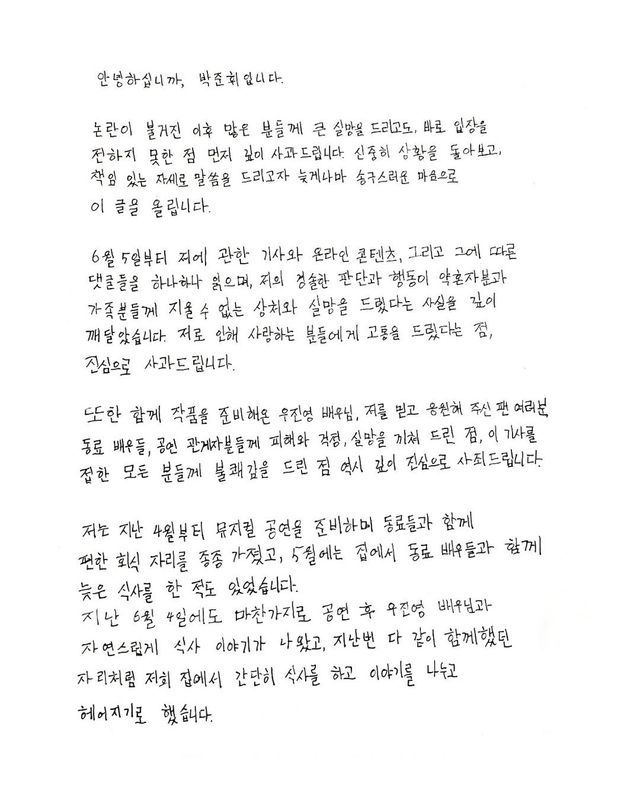 안녕하십니까, 박준휘입니다.
논란이 불거진 이후 많은 분들께 큰 실망을 드리고도, 바로 입장을
전하지 못한 점 먼저 깊이 사과드립니다. 신중히 상황을 돌아보고,
책임 있는 자세로 말씀을 드리고자 늦게나마 송구스러운 마음으로
이 글을 올립니다.
6월 5일부터 저에 관한 기사와 온라인 콘텐츠, 그리고 그에 따른
댓글들을 하나하나 읽으며, 저의 경솔한 판단과 행동이 약혼자분과
가족분들께 지울 수 없는 상처와 실망을 드렸다는 사실을 깊이
깨달았습니다. 저로 인해 사랑하는 분들에게 고통을 드렸다는 점,
진심으로 사과드립니다.
또한 함께 작품을 준비해온 우진영 배우님, 저를 믿고 응원해 주신 팬 여러분,
동료 배우들, 공연 관계자분들께 피해와 걱정, 실망을 끼쳐 드린 점, 이 기사를
접한 모든 분들께 불쾌감을 드린 점 역시 깊이 진심으로 사죄드립니다.
저는 지난 4월부터 뮤지컬 공연을 준비하며 동료들과 함께
편한 회식 자리를 종종 가졌고, 5월에는 집에서 동료 배우들과 함께
늦은 식사를 한 적도 있었습니다.
지난 6월 4일에도 마찬가지로 공연 후 우진영 배우님과
자연스럽게 식사 이야기가 나왔고, 지난번 다 같이 함께했던
자리처럼 저희 집에서 간단히 식사를 하고 이야기를 나누고
헤어지기로 했습니다.